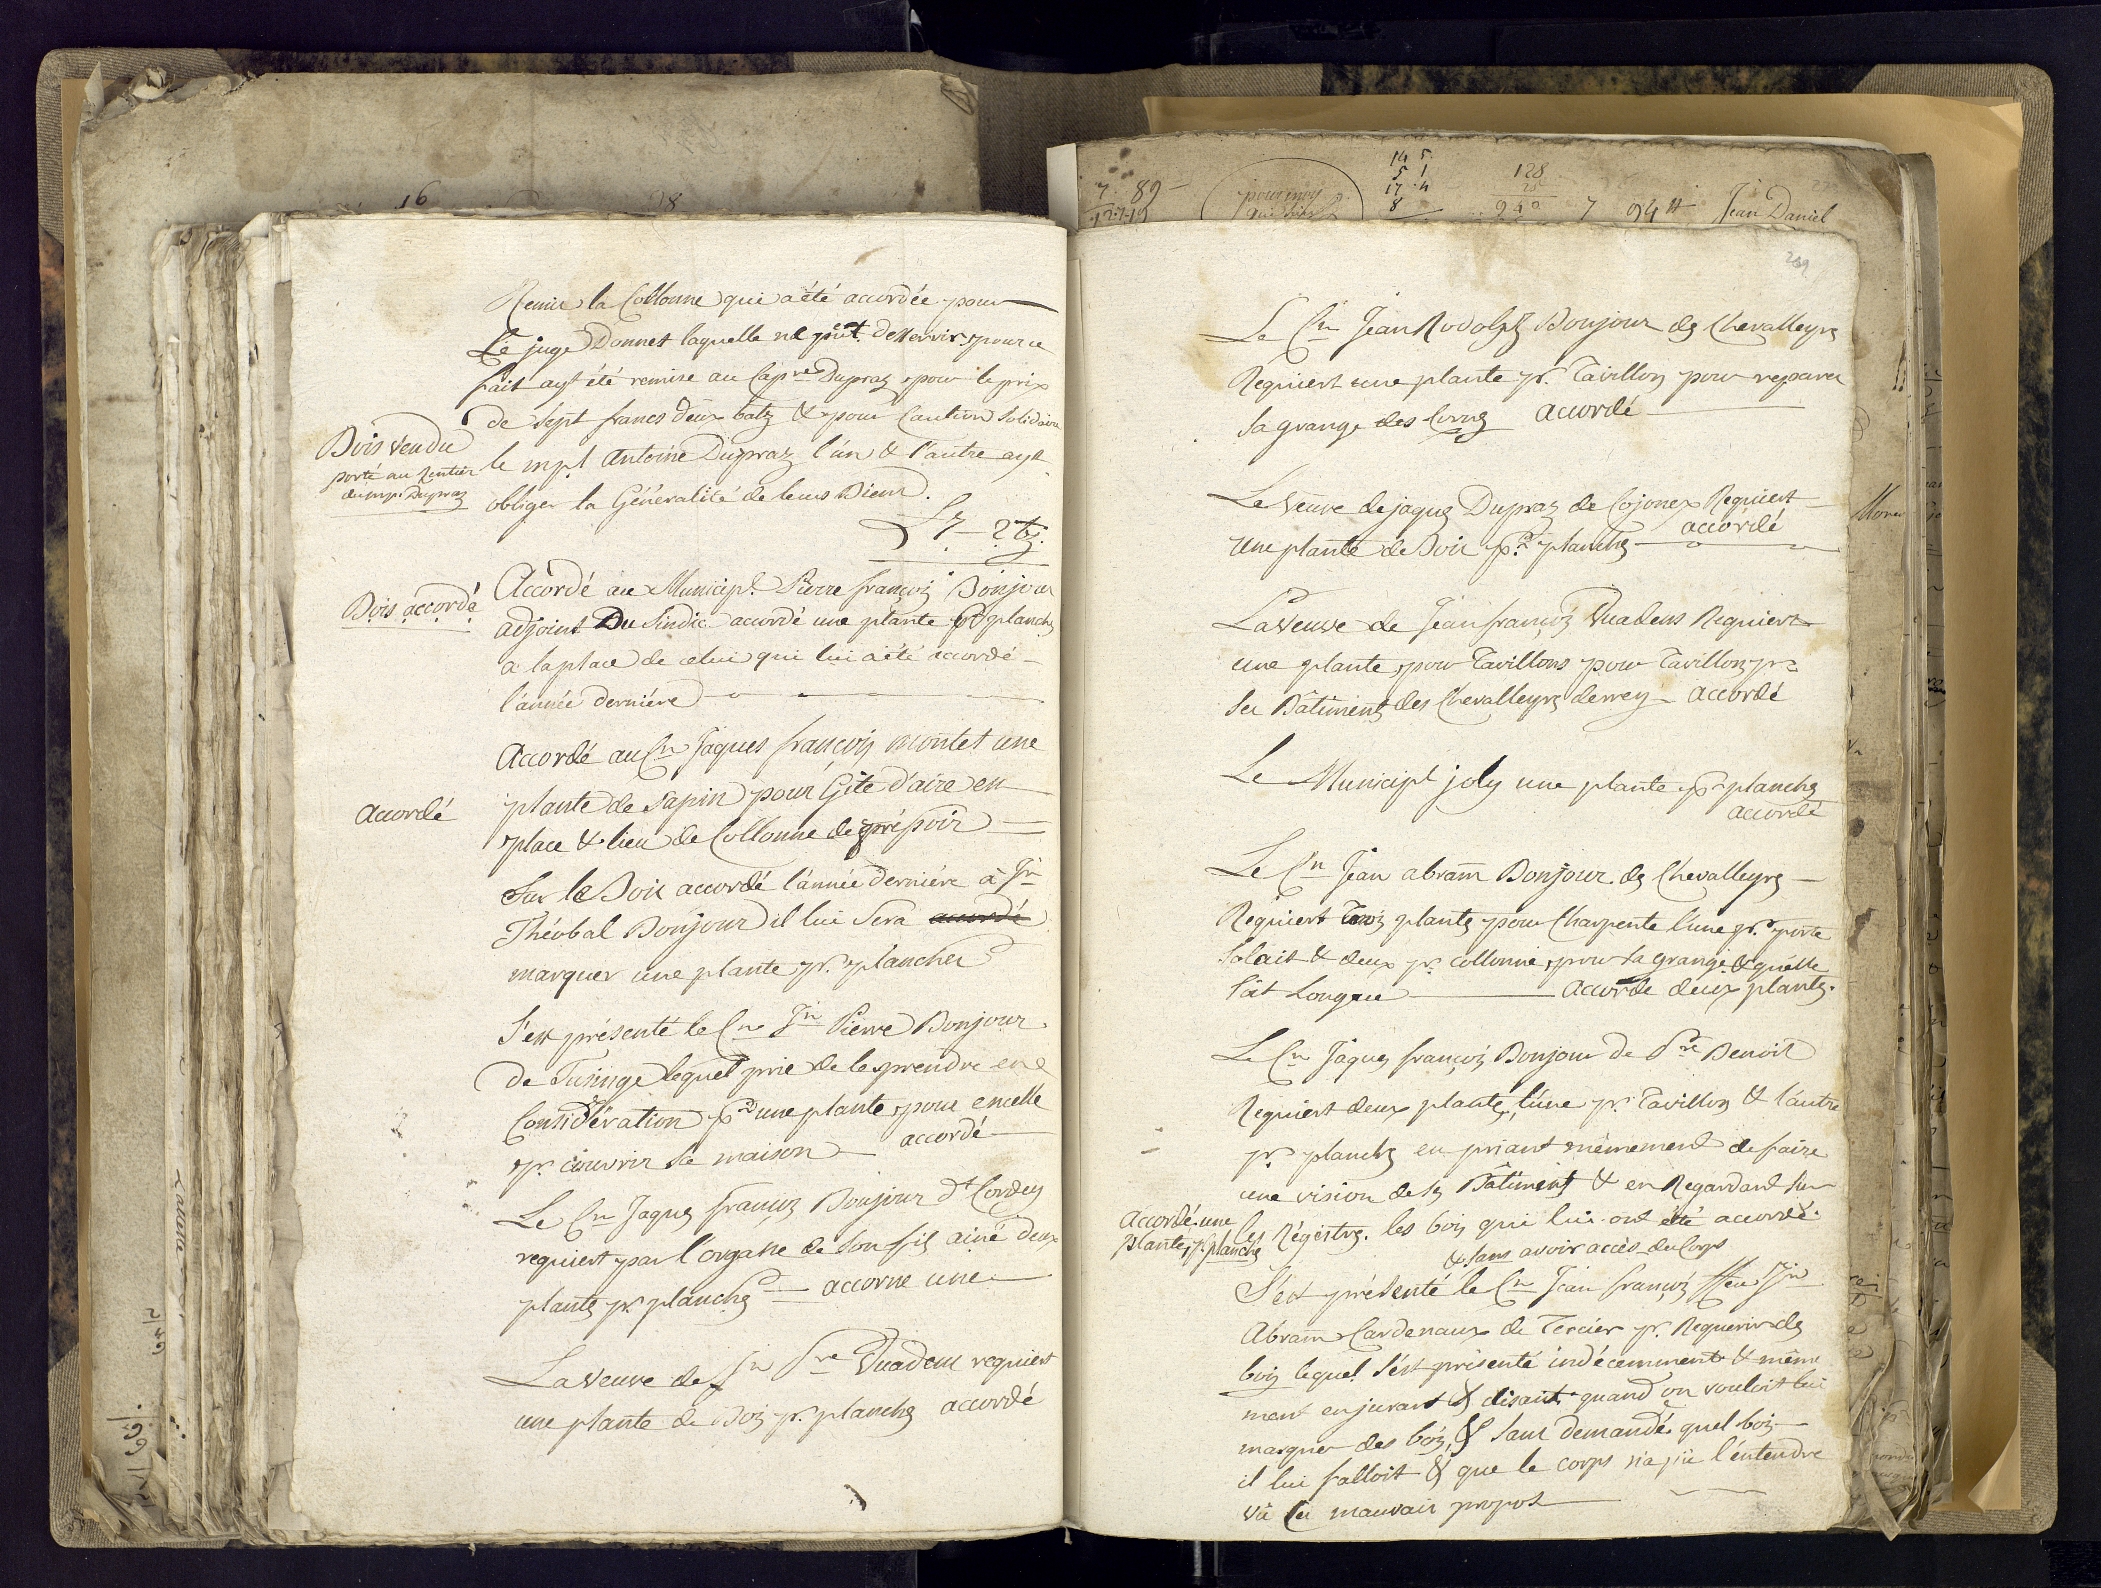 Remis la Collonne qui a été accordée pour
Le juge Donnet laquelle ne peût desservir pour ce
fait ayt été remise au Capne Dupraz pour le prix
de Sept francs deux batz & pour Caution Solidaire
Bois vendu
porté au Rentier
du mpl Dupraz
le mpl Antoine Dupraz l'un & l'autre ayt
obliger la Généralité de leurs Biens.
L 7 - 2 bz.
Bois accordé
Accordé au Municipl. Pierre françois Bonjour
adjoint Du Sindic accordé une plante pr planchs
a la place de celui qui lui a été accordé
l'année derniére
Accordé au Cn Jaques françois montet une
Accordé
plante de Sapin pour Gîte d'aire en
place & lieu de Collonne de préssoir
Sur le Bois accordé l'année derniére à Jn
Théobal Bonjour il lui Sera accordé
marquer une plante pr. planches
S'est présenté le Cn Jn Pierre Bonjour
de Tusinge lequel prie de le prendre en
Considération pr une plante pour encelle
pr. couvrir sa maison accordé
Le Cn Jaques françois Bonjour dt Cordey
requiert par l'organe de Son fils ainé deux
plantes pr planches accorne une
La veuve de Jn Pre Vuadens requiert
une plante de Bois pr. planches accordé
7 89
14 5
5 1
17 4
8
128
25
940 7 94 Jean Daniel
239
Le Cn Jean Rodolph Bonjour des Chevalleyres
Requiert une plante pr. Tavillon pour reparer
Sa grange des Cornes Accordé
La veuve de jaques Dupraz de Cojonex Requiert
accordé
une plante de Bois pr. planches
La veuve de Jean françois Vuadens Requiert
une plante pour Tavillons pour Tavillons pr
Ses Bâtiments des Chevalleyres derrey Accordé
Le Municipl joly une plante pr planches
accordé
Le Cn Jean abram Bonjour des Chevalleyres
Requiert trois plantes pour Charpente l'une pr. porte
Solait & deux pr. collonne pour la grange & quelle
soit Longue Accorde deux plantes.
Le Cn Jaques françois Bonjour de Pre Benoit
Requiert deux plantes, l'une pr. Tavillon & l'autre
pr. planches en priant mêmement de faire
une vision de ses Bâtiments & en Regardant Sur
Accordé une
plante, pr planches
les Régistres les bois qui lui ont été accordé
& Sans avoir accès du Corps
S'est présenté le Cn Jean françois ffeu Jn
Abram Cardenaux de Tercier pr. Requerir des
bois lequel s'est présenté indécemment & même
ment en jurant & disant quand on vouloit lui
marquer des bois, & Sans demandé quel bois
il lui falloit & que le corps n'a pû l'entendre
vû Ces mauvais propos